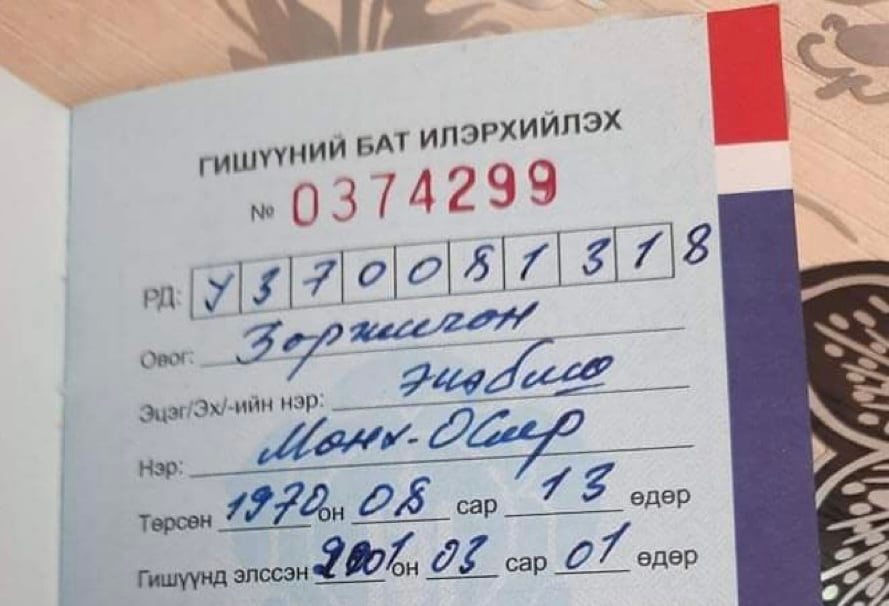 ГИШҮҮНИЙ БАТ ИЛЭРХИЙЛЭХ
№ 0374299
РД: УЗ70081318
Овог: Зоржигчон
Эцэг/Эх/-ийн нэр:
Нэр: Мөнх-Очир
Төрсөн 1970 он 08 сар 13 өдөр
Гишүүнд элссэн 2001 он 03 сар 01 өдөр